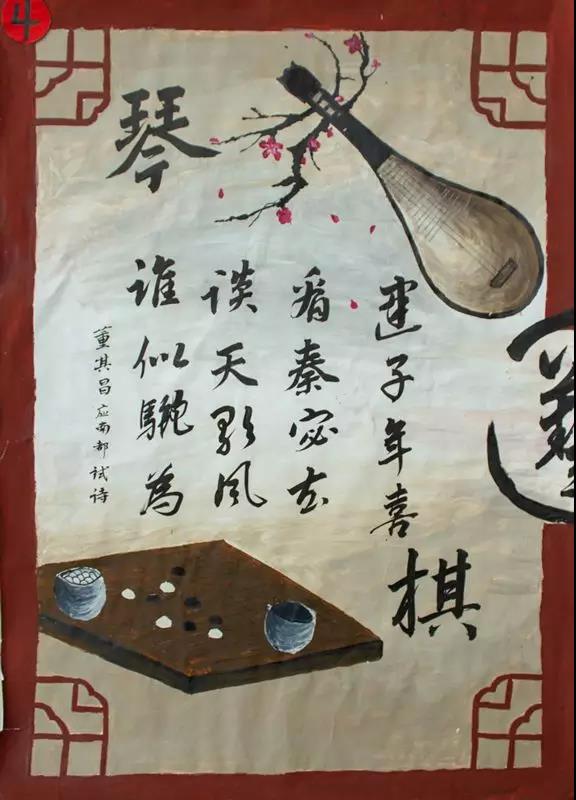 4
琴
建子年喜
看秦宓
谈天风
谁似为
董其昌应南都试诗
棋